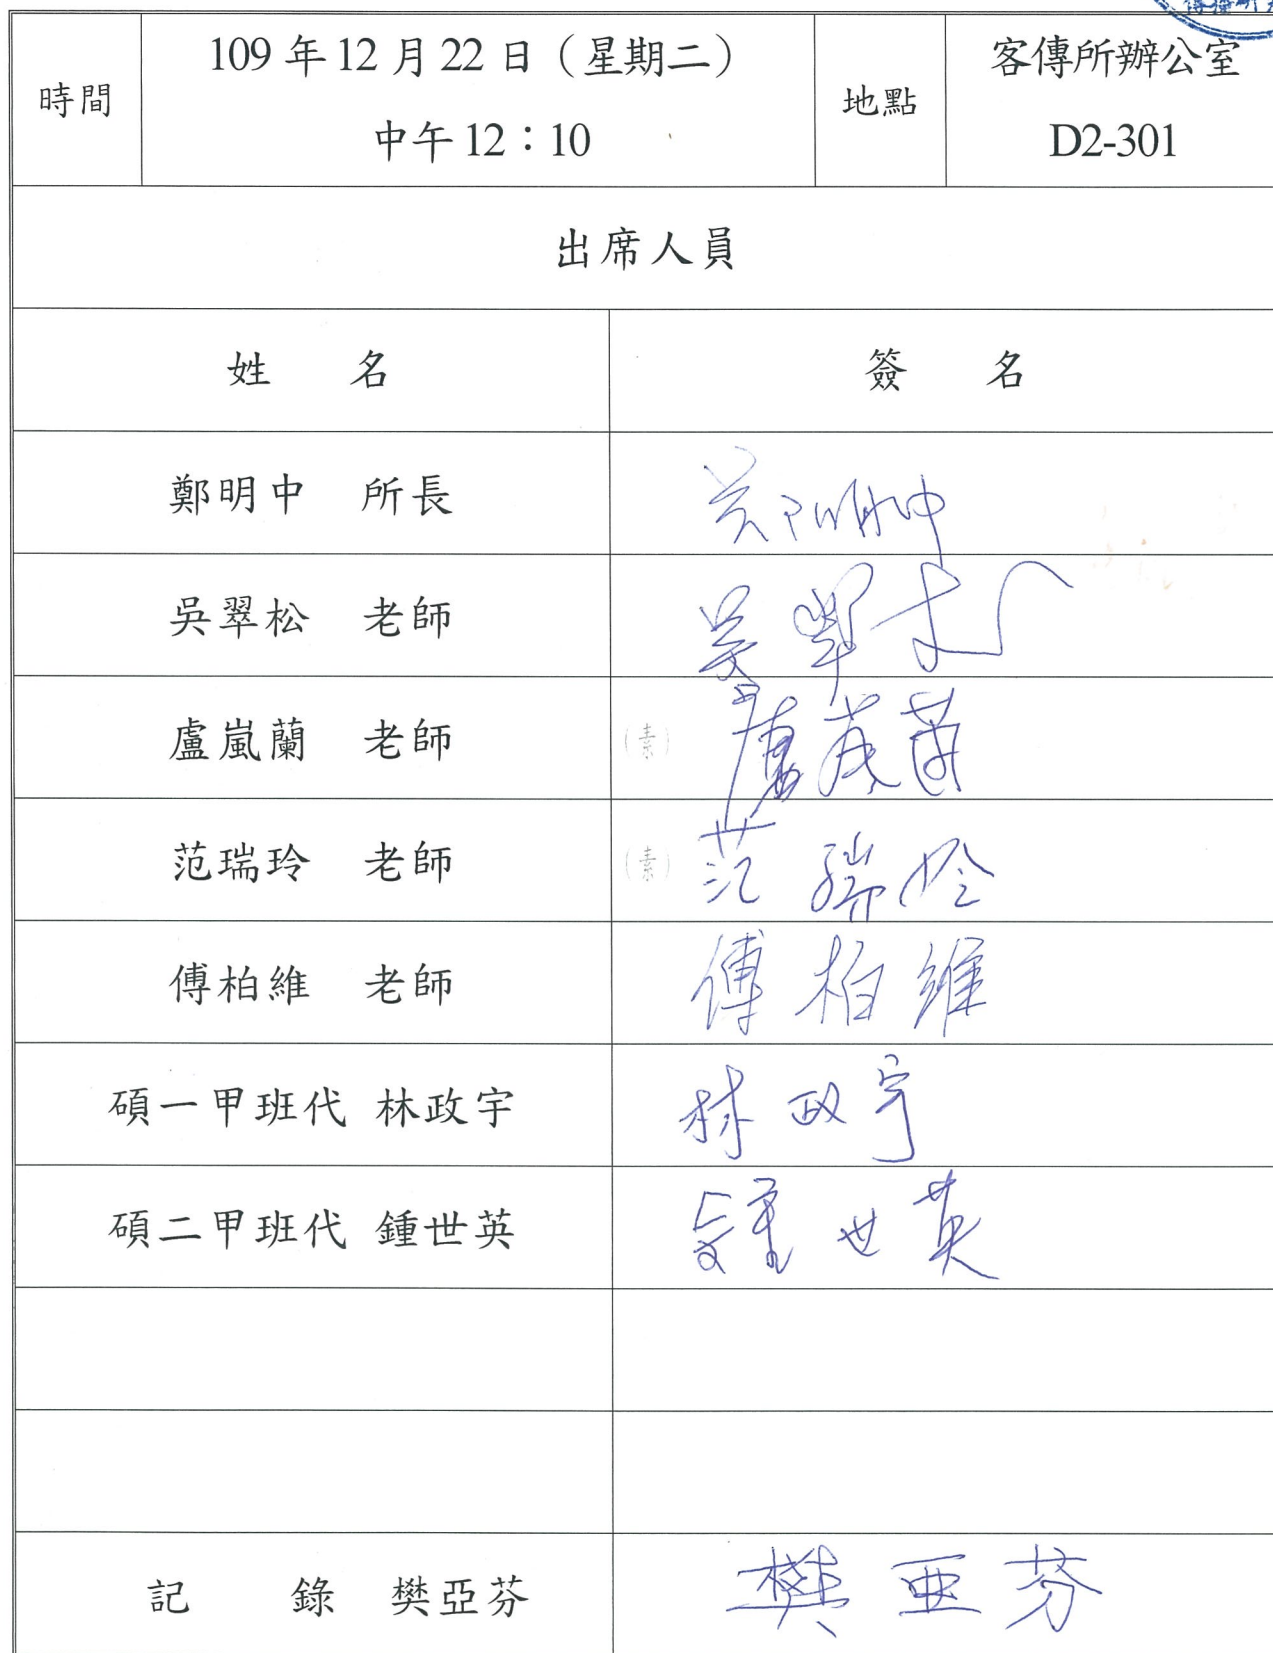 傳播研
時間 109 年 12 月 22 日（星期二） 中午 12：10 地點 客傳所辦公室 D2-301
出席人員
姓 名 簽 名
鄭明中 所長 鄭明中
吳翠松 老師 吳翠松
盧嵐蘭 老師 （素） 盧嵐蘭
范瑞玲 老師 （素） 范瑞玲
傅柏維 老師 傅柏維
碩一甲班代 林政宇 林政宇
碩二甲班代 鍾世英 鍾世英
記 錄 樊亞芬 樊亞芬